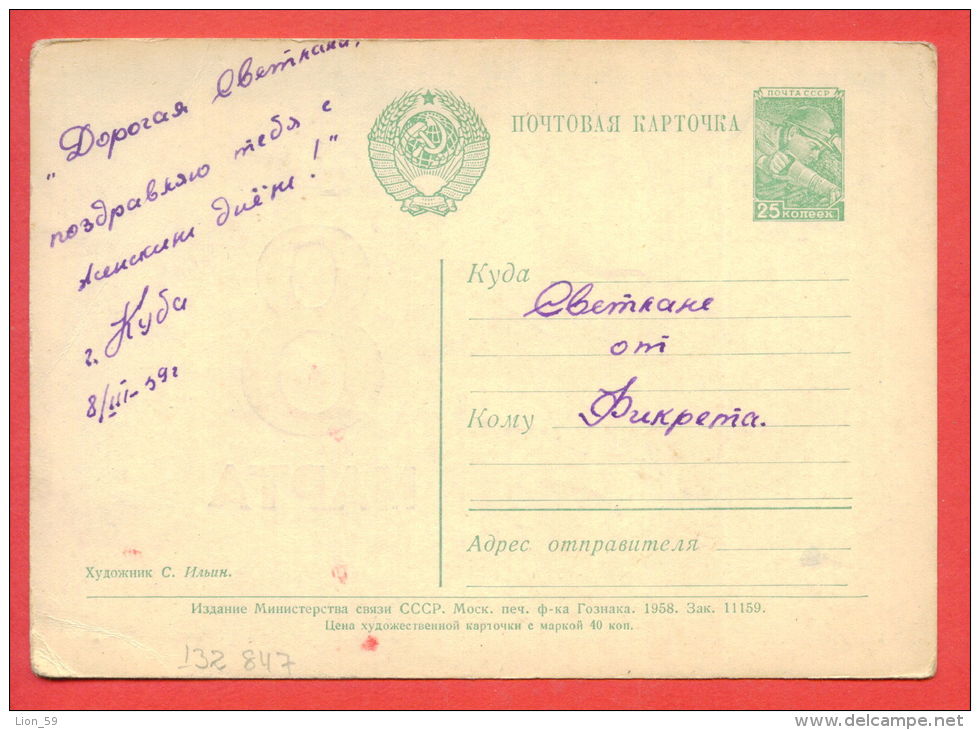 "Дорогая Светлана!
поздравляю тебя с
женским днём!"
г. Куба
8/III-59г
ПОЧТОВАЯ КАРТОЧКА
ПОЧТА СССР
25 КОПЕЕК
Куда
Светлане
от
Кому Фикрета.
Адрес отправителя
Художник С. Ильин.
Издание Министерства связи СССР. Моск. печ. ф-ка Гознака. 1958. Зак. 11159.
Цена художественной карточки с маркой 40 коп.
132 847
Lion_59
www.delcampe.net